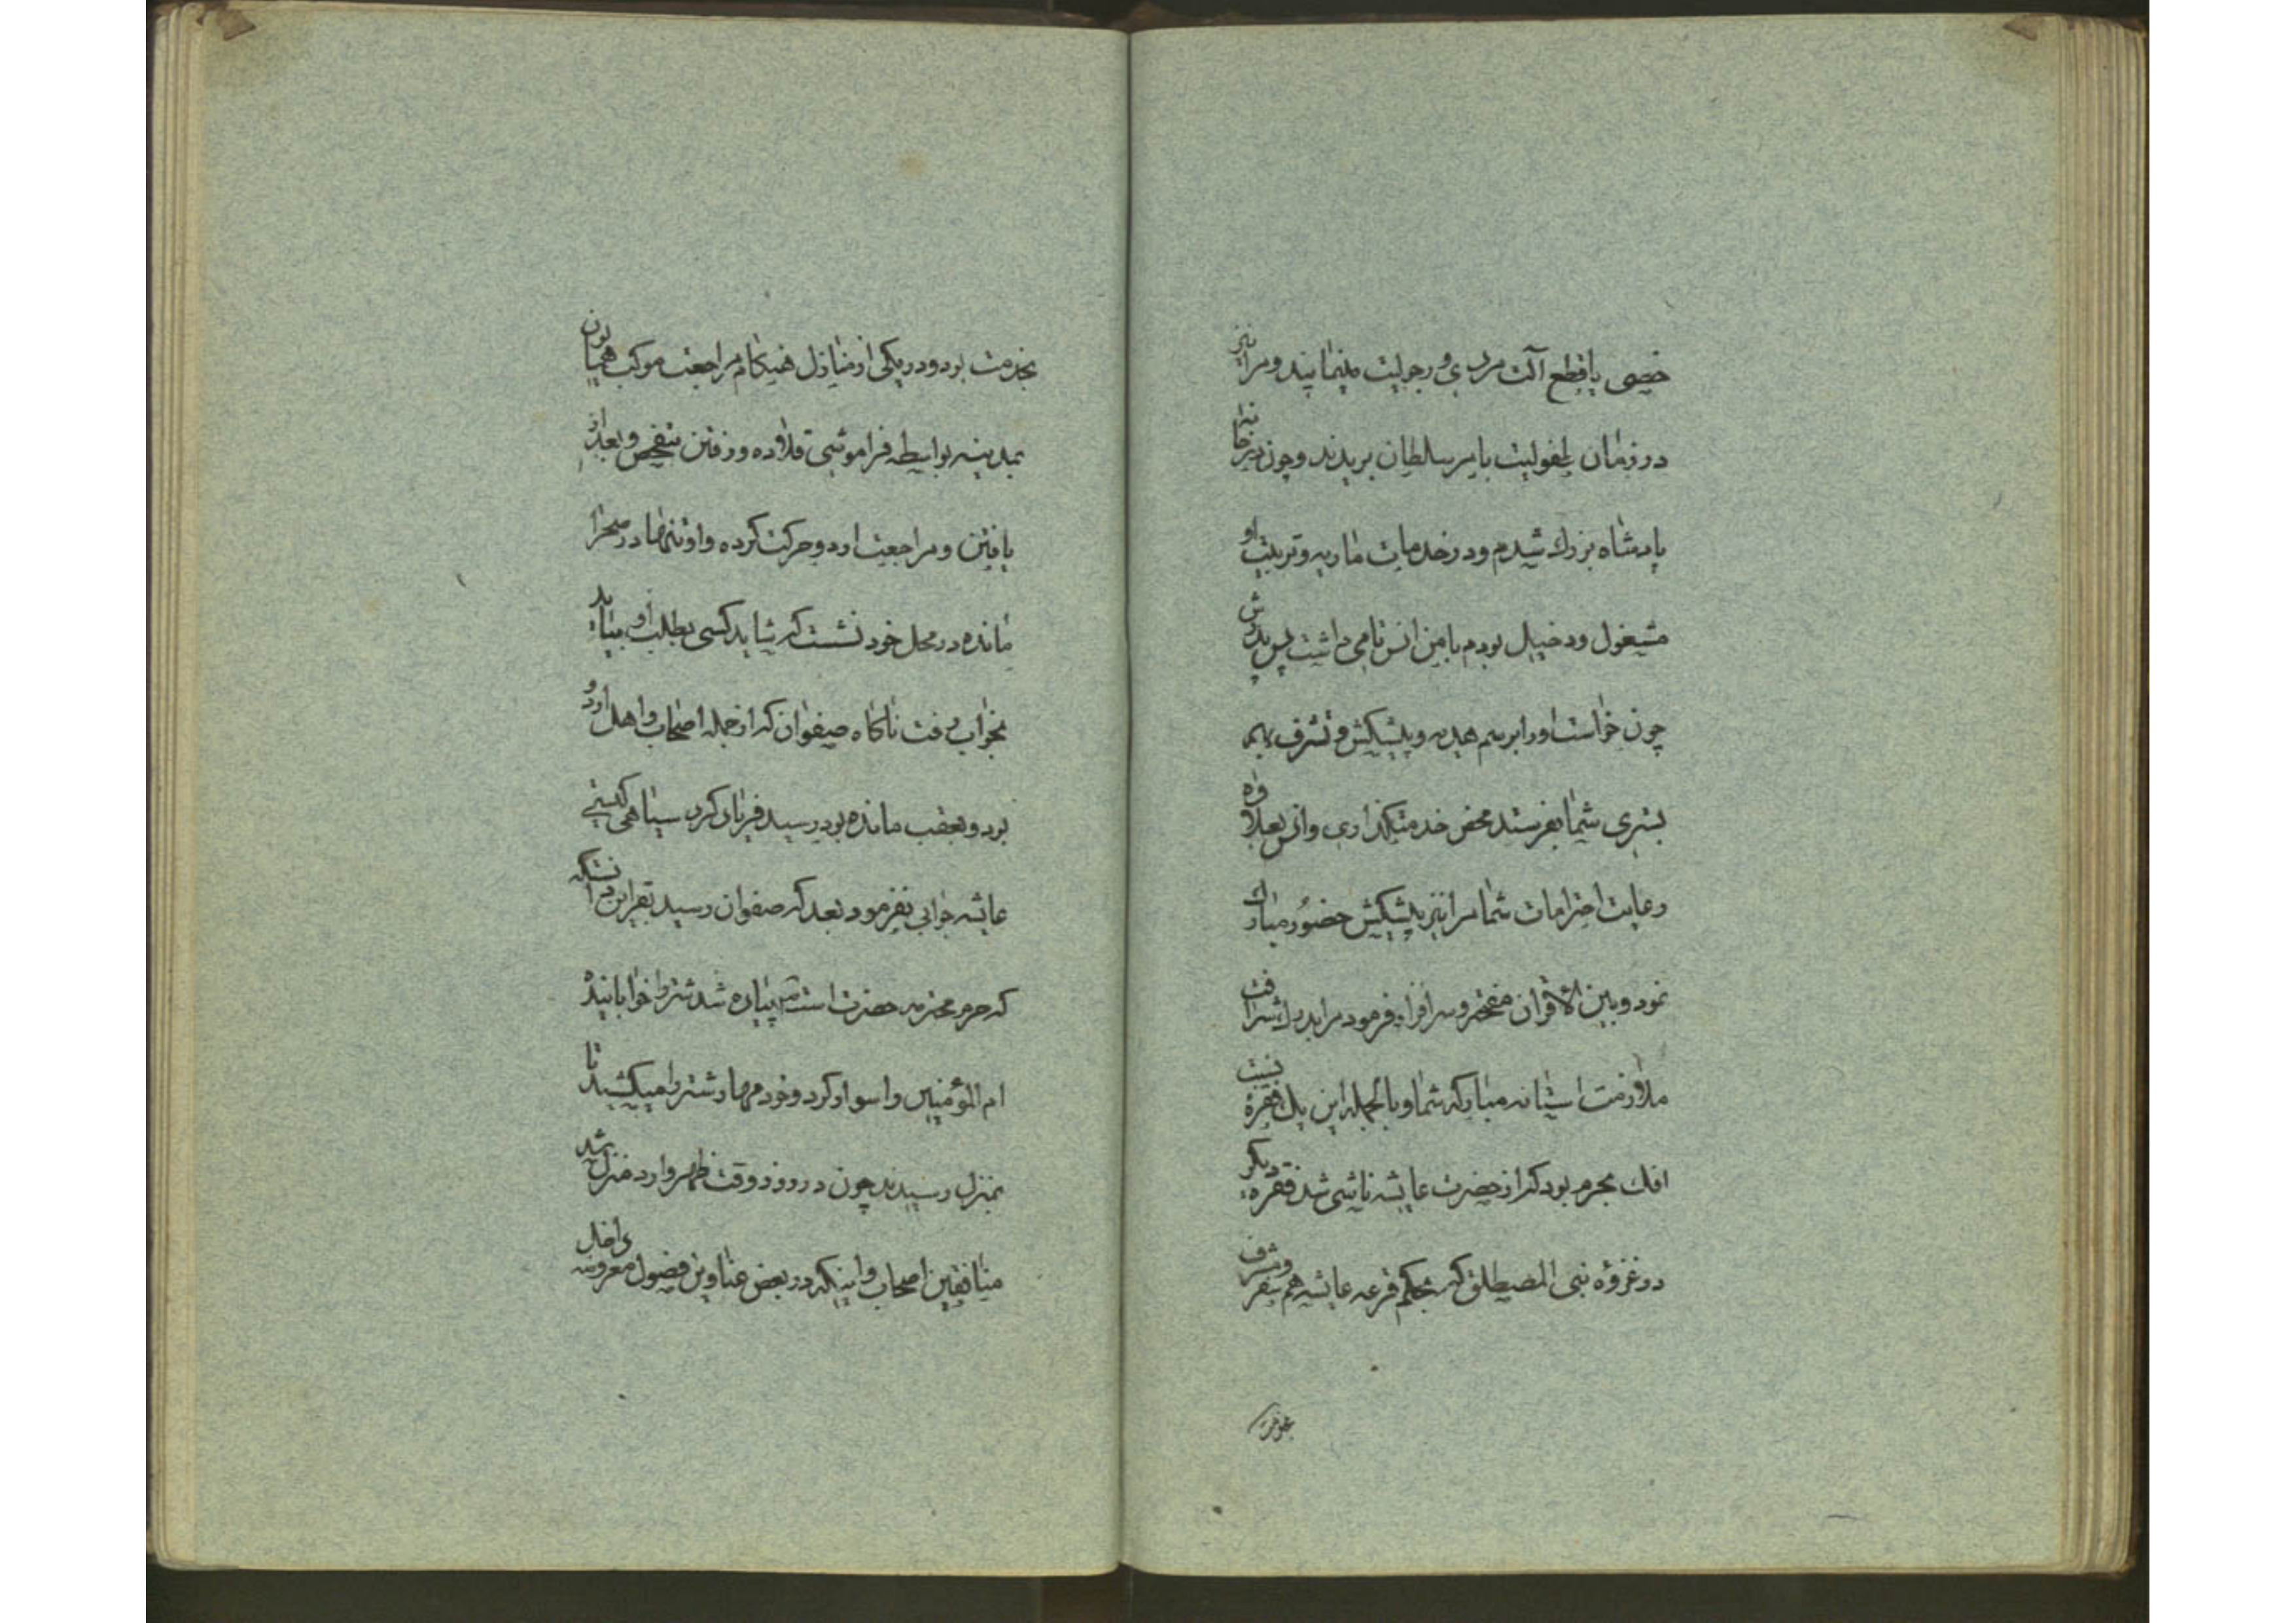 خصی یا قطع آلت مردی و رجولیت مینمایند و مرا نیز
در زمان طفولیت بامر سلطان بریدند و چون در خانه
پادشاه بزرك شدم و در خدمات ماریه و تربیت او
مشغول و دخیل بودم با من انس تامی داشت پس پدرش
چون خواست او را برسم هدیه و پیشکش و تشرف
بشری شما بفرستد محض خدمتکذاری و انس بعلاوه
رعایت احترامات شما مرا نیز پیشکش حضور مبارك
نمود و بین الاقران مفتخر و سرافراز فرمود مرا بدرك شرافت
ملازمت استانه مبارکه شما و بالجمله این یك فقره نسبت
افك مجرم بود که از حضرت عایشه ناشی شد فقره دیگر
در غزوه بنی المصطلق که بحکم قرعه عایشه هم بسفر و شرف
بخدمت بود و در یکی از منازل هنکام مراجعت موکب همایون
بمدینه بواسطه فراموشی قلاده و رفتن بتفحص و بعد از
یافتن و مراجعت اردو حرکت کرده و او تنها در صحرا
مانده در محل خود نشست که شاید کسی بطلب او بیاید
بخواب رفت ناکاه صفوان که از جمله اصحاب و اهل اردو
بود و بعقب مانده بود رسید فریاد کرد سیاهی کیستی
عایشه جوابی نفرمود بعد که صفوان رسید بقراین دانست که
که حرم محترمه حضرت است پیاده شد شتر را خوابانیده
ام المؤمنین را سوار کرد و خود مهار شتر را میکشید تا
بمنزل رسیدند چون در روز و وقت ظهر وارد منزل شد
منافقین اصحاب و اینکه در بعض عناوین فصول معروضه داخل